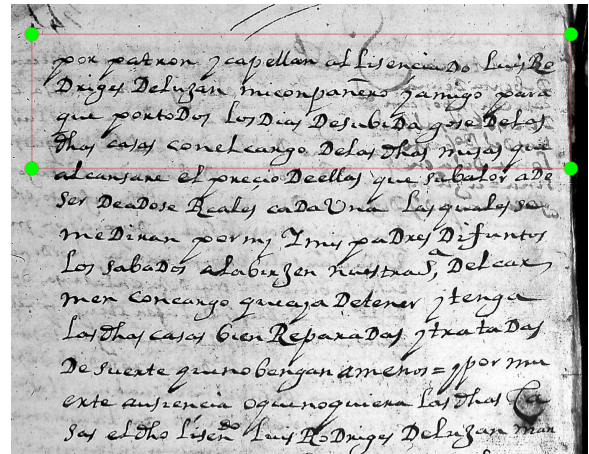 por patron y capellan al lisenciado luis Ro
Driges De luzan mi conpañero y amigo para
que por todos los Dias De su biDa gose De las
dhas casas con el cargo De las dhas misas que
alcansare el preçio De ellas que su balor a De
ser De a Dose Reales caDa Una las quales se
me Diran por mi Y mis paDres Difuntos
los sabaDos a la birJen nuestra sª Del car
men con cargo que aya De tener y tenga
las dhas casas bien ReparaDas y trataDas
De suerte qui no bengan a menos = y por mu
erte ausiencia o qui no quiera las dhas Ca
sas el dho lisendo luis RoDriges De luzan man